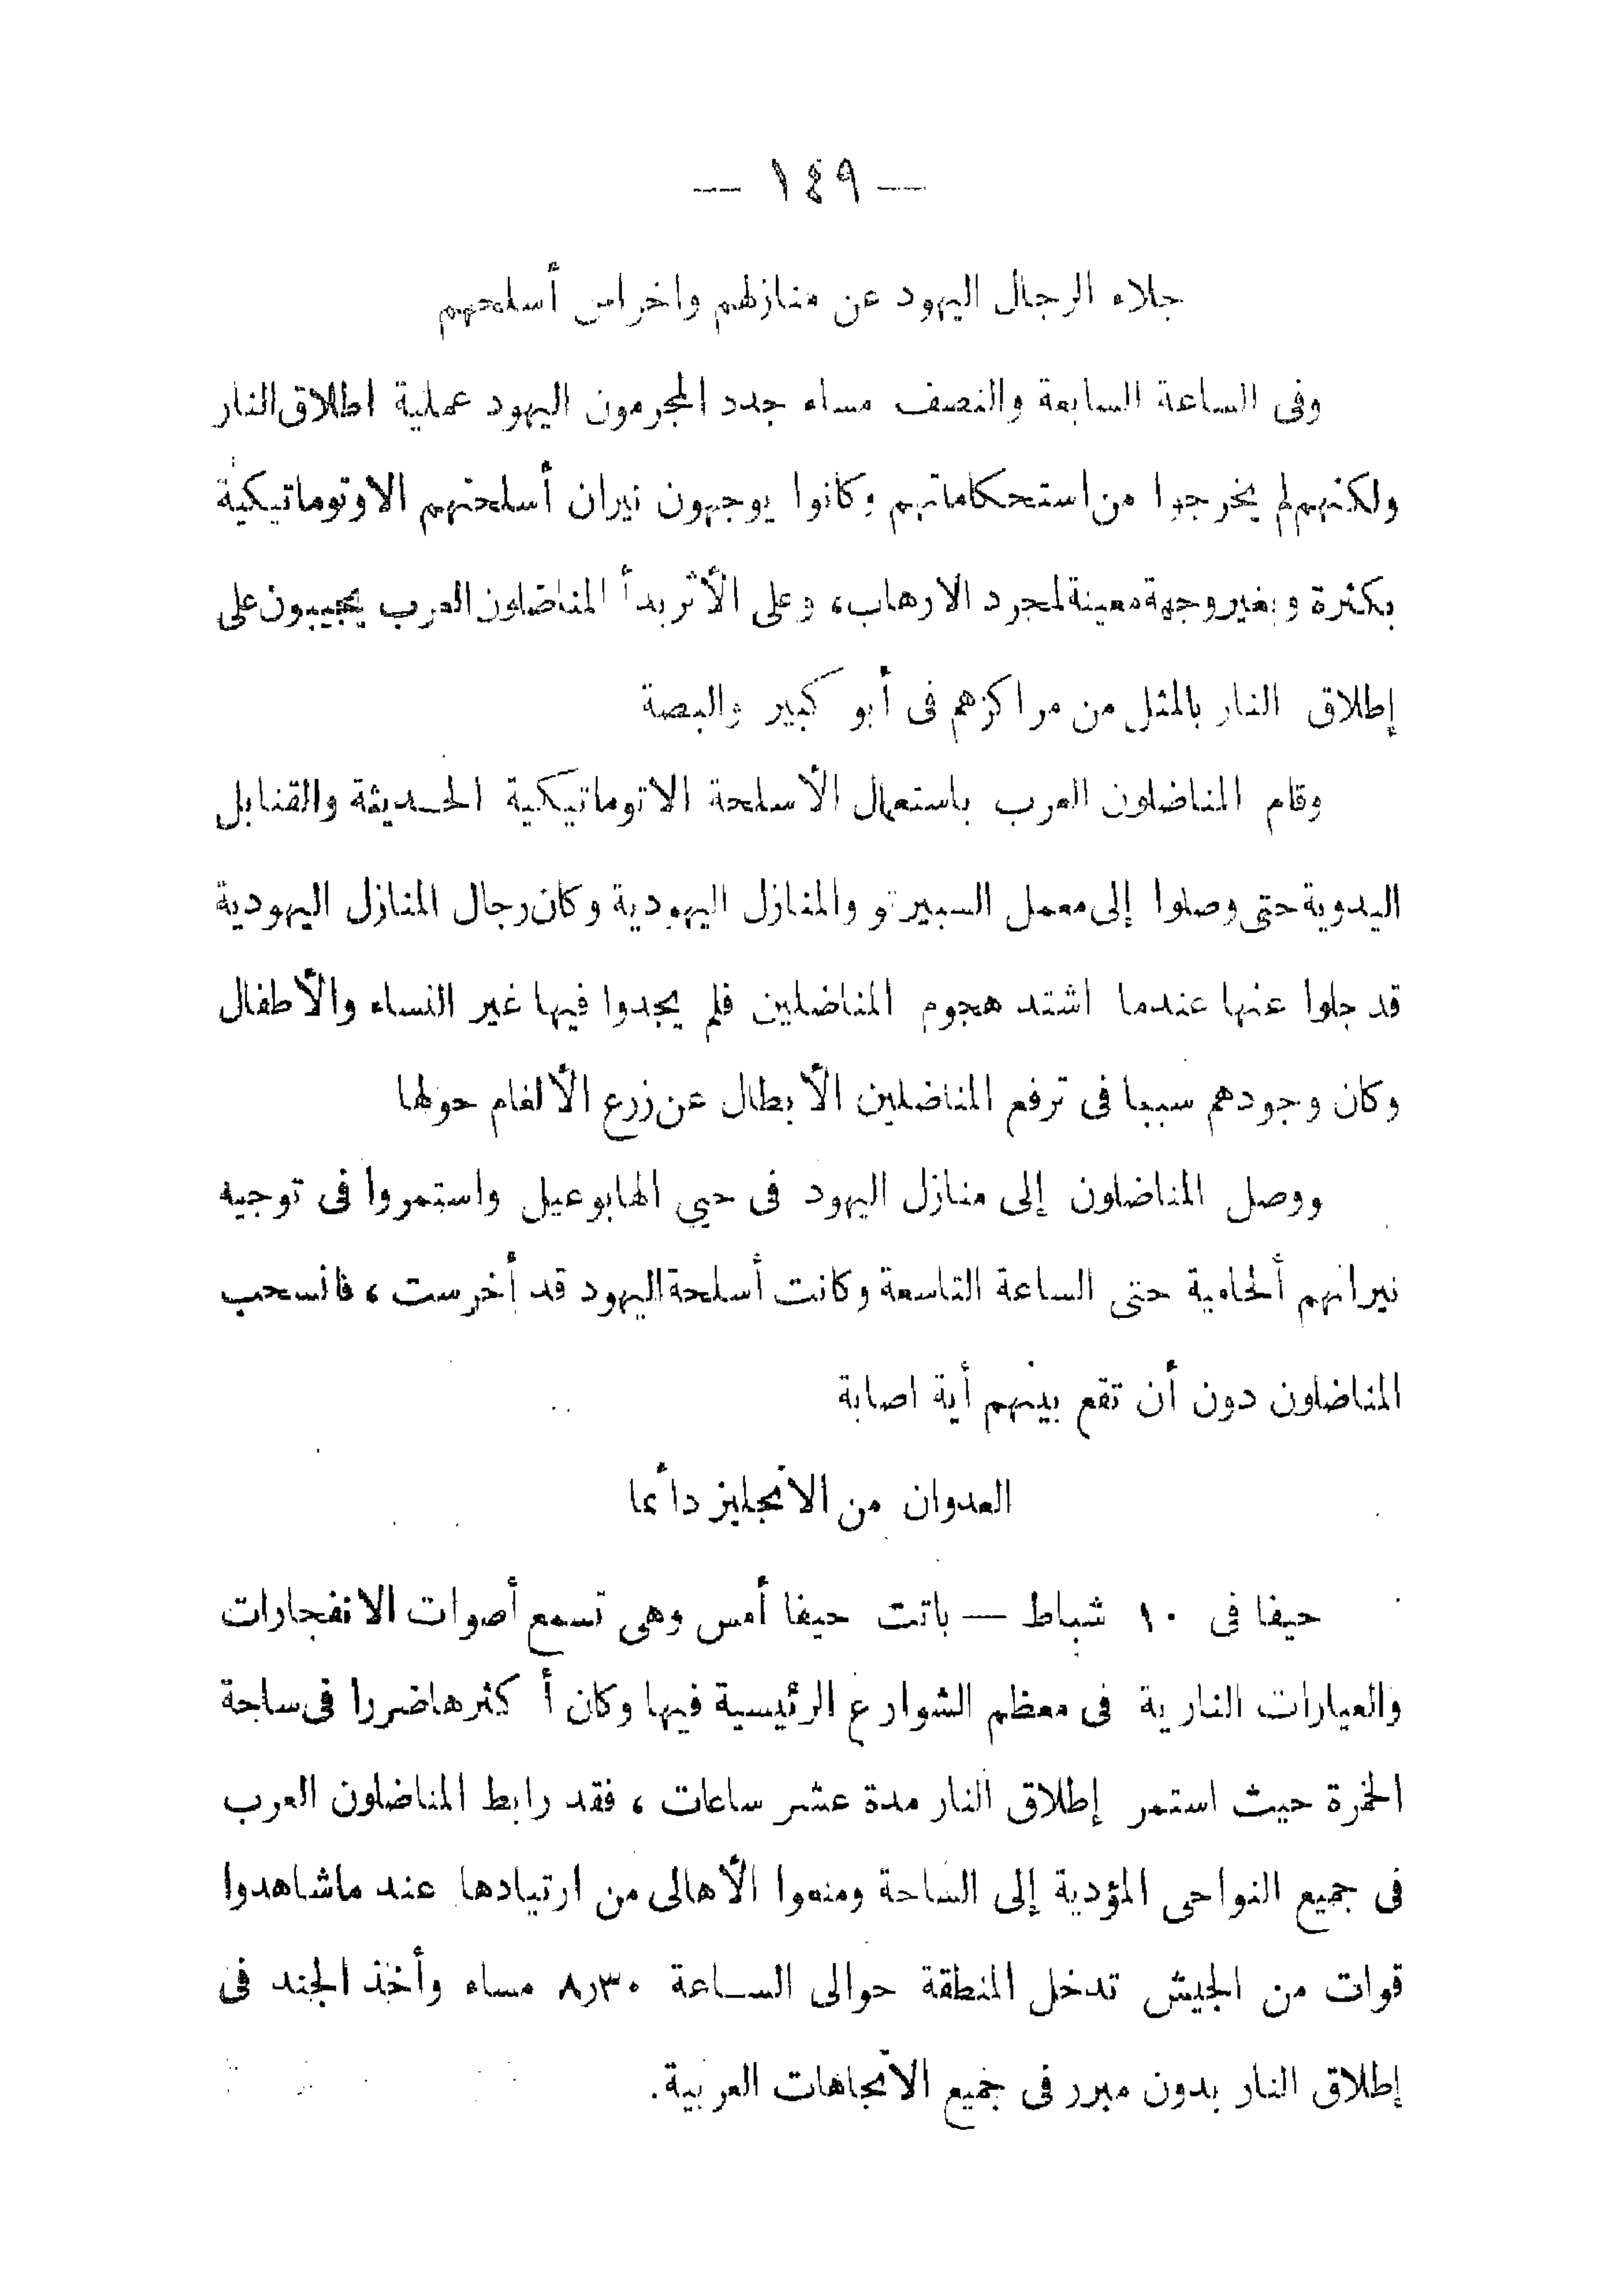 — ١٤٩ —
جلاء الرجال اليهود عن منازلهم واخراس أسلحهم
وفى الساعة السابعة والنصف مساء جدد المجرمون اليهود عملية اطلاق النار
ولكنهم لم يخرجوا من استحكاماتهم وكانوا يوجهون نيران أسلحتهم الاوتوماتيكية
بكثرة وبغير وجهة معينة لمجرد الارهاب، وعلى الأثر بدأ المناضلون العرب يجيبون على
إطلاق النار بالمثل من مراكزهم فى أبو كبير والبصة
وقام المناضلون العرب باستعمال الأسلحة الاتوماتيكية الحديثة والقنابل
اليدوية حتى وصلوا إلى معمل السبيرتو والمنازل اليهودية وكان رجال المنازل اليهودية
قد جلوا عنها عندما اشتد هجوم المناضلين فلم يجدوا فيها غير النساء والأطفال
وكان وجودهم سببا فى ترفع المناضلين الأبطال عن زرع الألغام حولها
ووصل المناضلون إلى منازل اليهود فى حيي الهابوعيل واستمروا فى توجيه
نيرانهم ألحامية حتى الساعة التاسعة وكانت أسلحة اليهود قد أخرست، فانسحب
المناضلون دون أن تقع بينهم أية اصابة
العدوان من الانجليز دأئما
حيفا فى ١٠ شباط — باتت حيفا أمس وهى تسمع أصوات الانفجارات
والعيارات النارية فى معظم الشوارع الرئيسية فيها وكان أكثرها ضررا فى ساحة
الخمرة حيث استمر إطلاق النار مدة عشر ساعات، فقد رابط المناضلون العرب
فى جميع النواحى المؤدية إلى الساحة ومنعوا الأهالى من ارتيادها عند ماشاهدوا
قوات من الجيش تدخل المنطقة حوالى الساعة ٨٫٣٠ مساء وأخذ الجند فى
إطلاق النار بدون مبرر فى جميع الاتجاهات العربية.